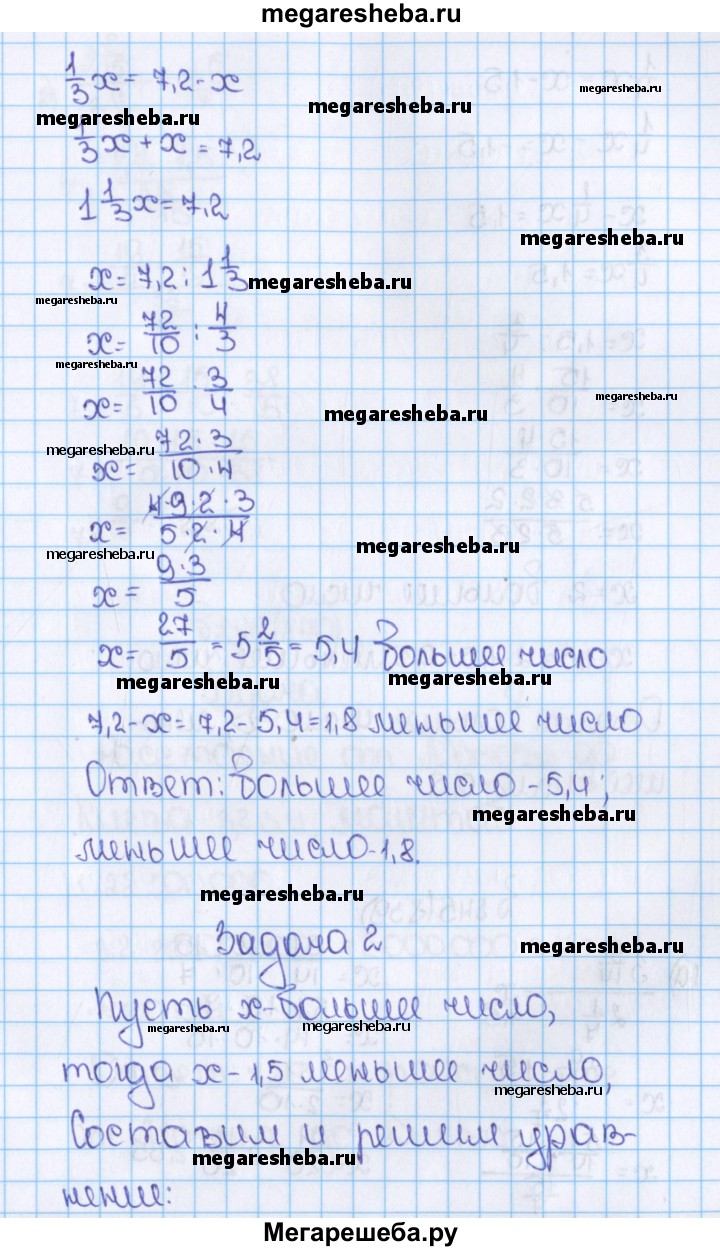 megaresheba.ru
1/3 x = 7,2 - x
megaresheba.ru
megaresheba.ru
megaresheba.ru
1/3 x + x = 7,2
1 1/3 x = 7,2
megaresheba.ru
x = 7,2 : 1 1/3
megaresheba.ru
megaresheba.ru
x = 72/10 : 4/3
megaresheba.ru
x = 72/10 · 3/4
megaresheba.ru
megaresheba.ru
x = 72·3/10·4
megaresheba.ru
x = 4·9·2·3/5·2·4
megaresheba.ru
megaresheba.ru
x = 9·3/5
x = 27/5 = 5 2/5 = 5,4 большее число
megaresheba.ru
megaresheba.ru
7,2 - x = 7,2 - 5,4 = 1,8 меньшее число
Ответ: большее число - 5,4;
megaresheba.ru
меньшее число - 1,8.
megaresheba.ru
Задача 2
megaresheba.ru
Пусть x - большее число,
megaresheba.ru
megaresheba.ru
тогда x - 1,5 меньшее число,
megaresheba.ru
Составим и решим урав-
megaresheba.ru
нение:
Мегарешеба.ру